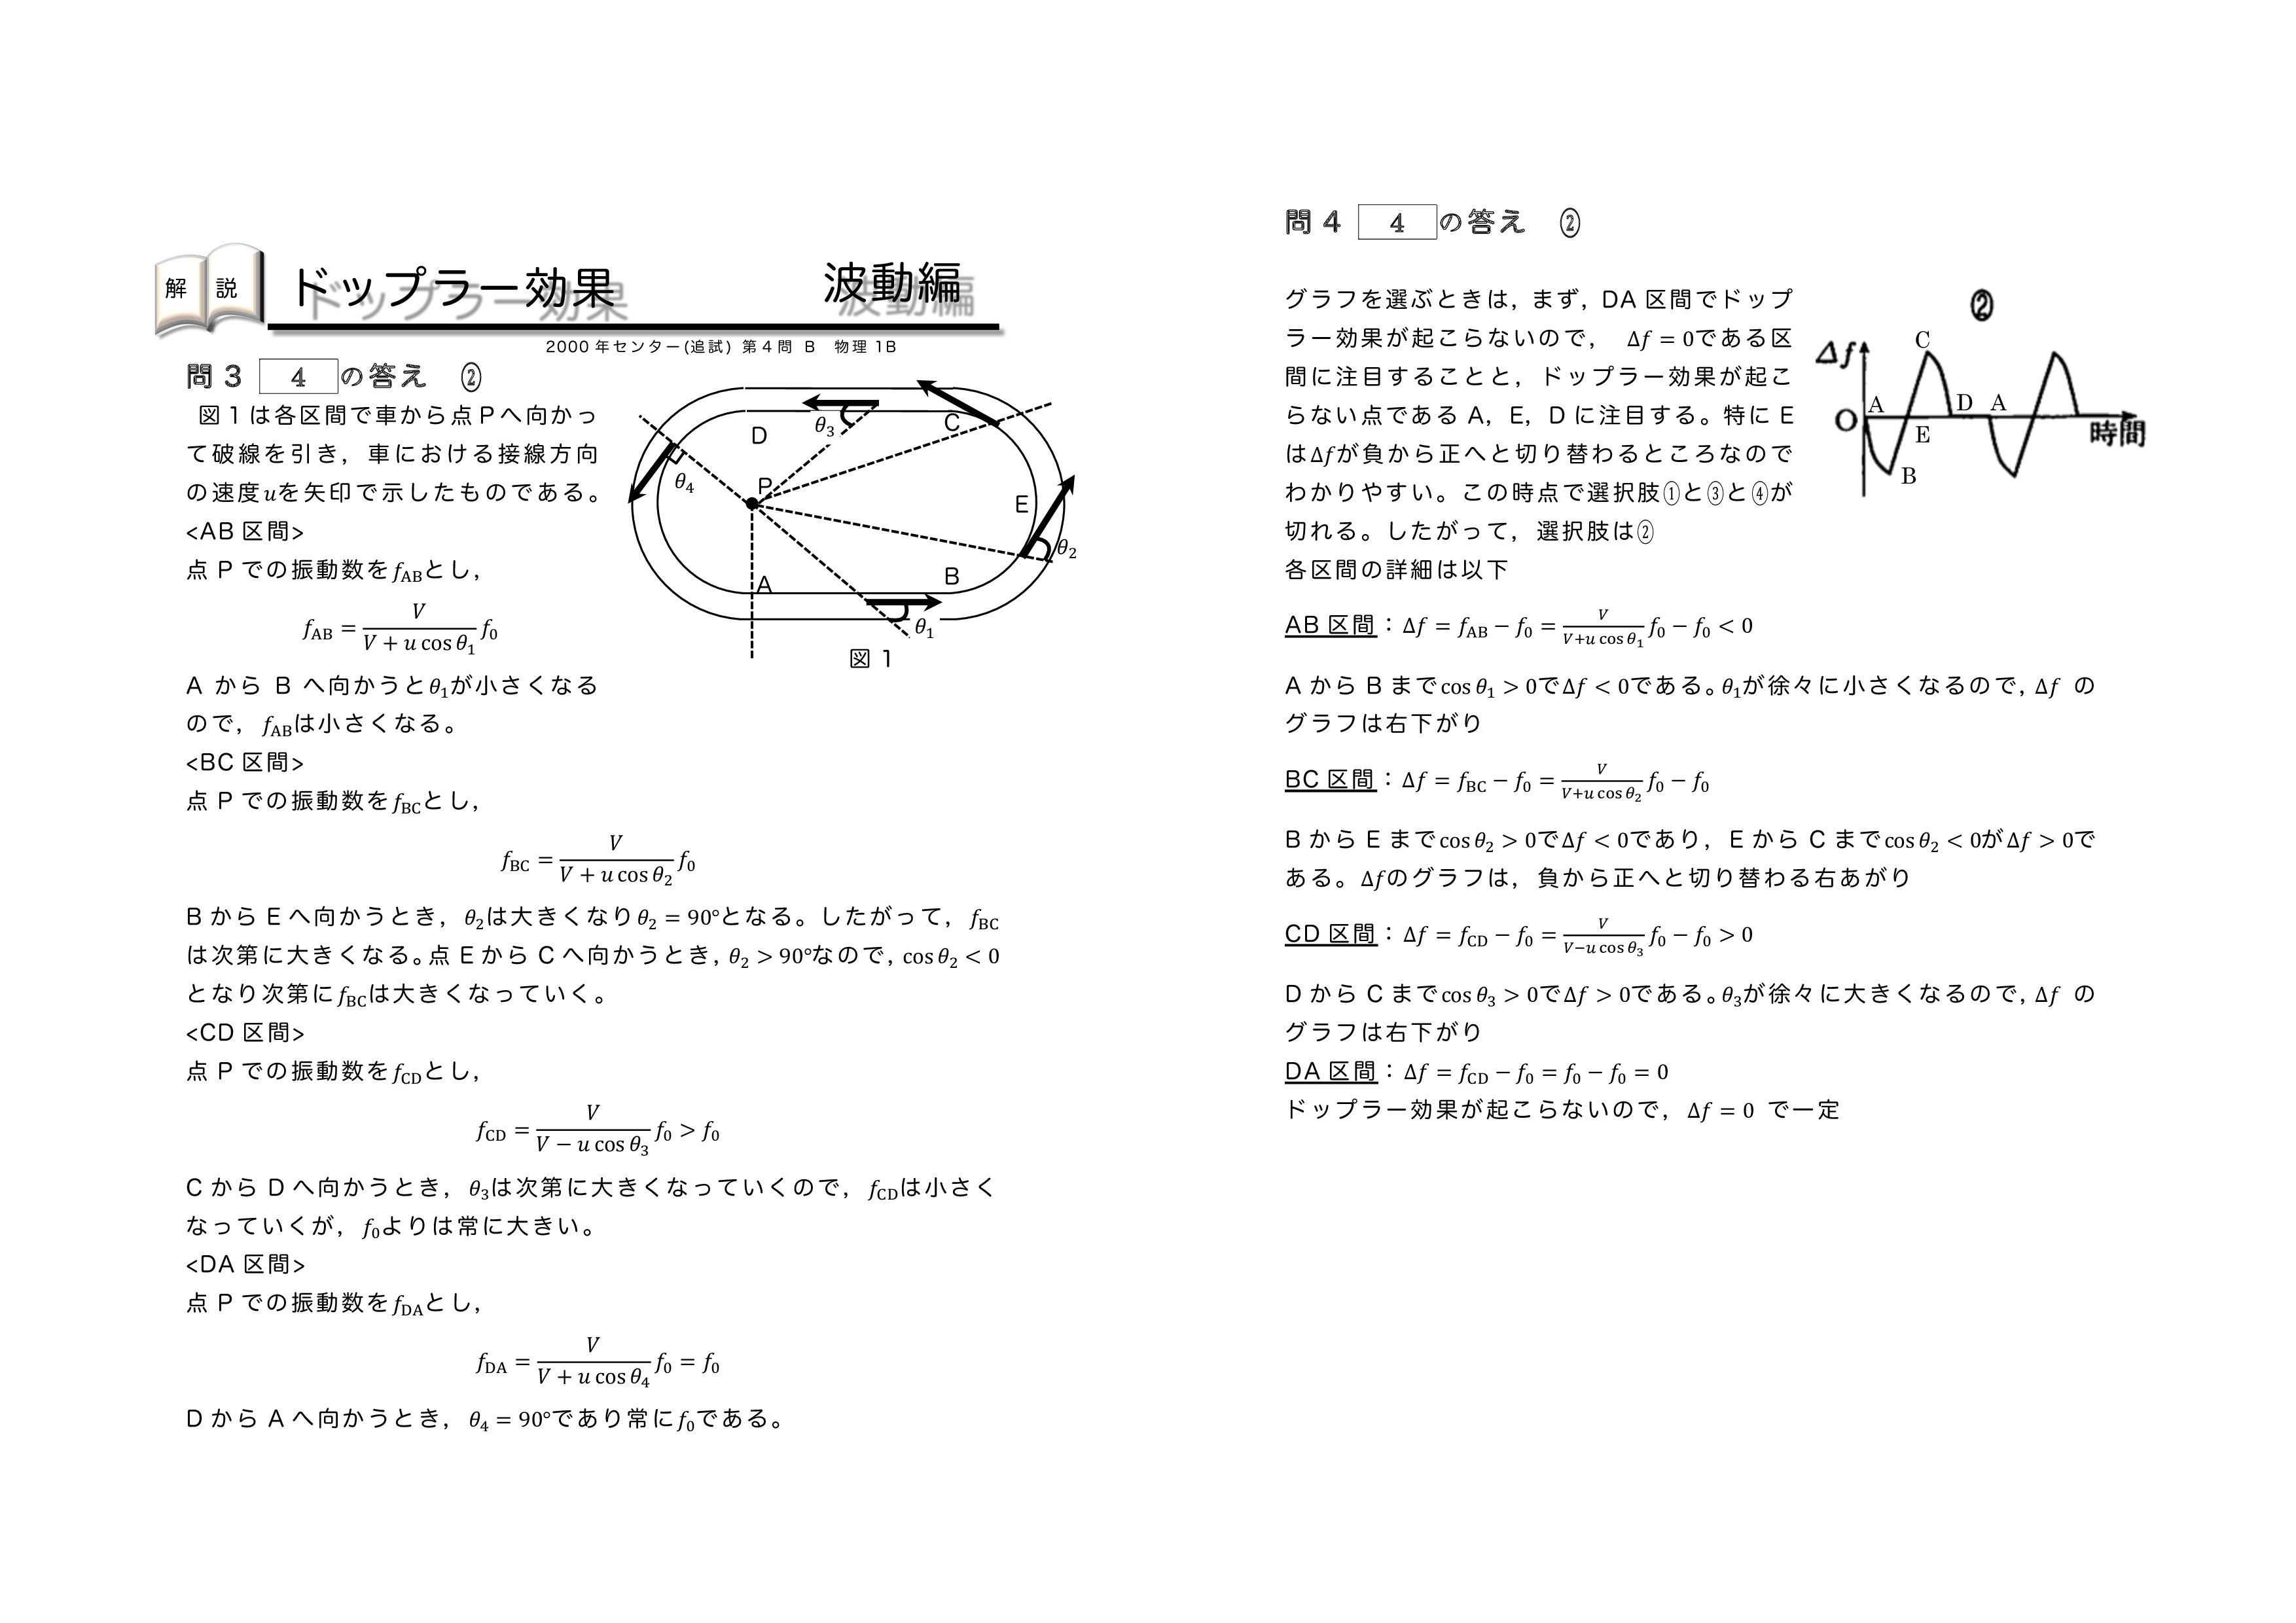 解 説
ドップラー効果 波動編
2000 年センター(追試) 第４問 B 物理 1B
問３ 4 の答え ②
図１は各区間で車から点Ｐへ向かっ
て破線を引き，車における接線方向
の速度uを矢印で示したものである。
<AB 区間>
点 P での振動数をf_ABとし，
f_AB = V/(V + u cos θ₁) f₀
A から B へ向かうとθ₁が小さくなる
ので，f_ABは小さくなる。
D
θ₃
C
θ₄
P
E
θ₂
A
B
θ₁
図１
<BC 区間>
点 P での振動数をf_BCとし，
f_BC = V/(V + u cos θ₂) f₀
B から E へ向かうとき，θ₂は大きくなりθ₂ = 90°となる。したがって，f_BC
は次第に大きくなる。点 E から C へ向かうとき，θ₂ > 90°なので，cos θ₂ < 0
となり次第にf_BCは大きくなっていく。
<CD 区間>
点 P での振動数をf_CDとし，
f_CD = V/(V − u cos θ₃) f₀ > f₀
C から D へ向かうとき，θ₃は次第に大きくなっていくので，f_CDは小さく
なっていくが，f₀よりは常に大きい。
<DA 区間>
点 P での振動数をf_DAとし，
f_DA = V/(V + u cos θ₄) f₀ = f₀
D から A へ向かうとき，θ₄ = 90°であり常にf₀である。
問４ 4 の答え ②
グラフを選ぶときは，まず，DA 区間でドップ
ラー効果が起こらないので， Δf = 0である区
間に注目することと，ドップラー効果が起こ
らない点である A，E，D に注目する。特に E
はΔfが負から正へと切り替わるところなので
わかりやすい。この時点で選択肢①と③と④が
切れる。したがって，選択肢は②
各区間の詳細は以下
②
Δf
C
A
D
A
O
E
時間
B
AB 区間：Δf = f_AB − f₀ = V/(V+u cos θ₁) f₀ − f₀ < 0
A から B までcos θ₁ > 0でΔf < 0である。θ₁が徐々に小さくなるので，Δf の
グラフは右下がり
BC 区間：Δf = f_BC − f₀ = V/(V+u cos θ₂) f₀ − f₀
B から E までcos θ₂ > 0でΔf < 0であり，E から C までcos θ₂ < 0がΔf > 0で
ある。Δfのグラフは，負から正へと切り替わる右あがり
CD 区間：Δf = f_CD − f₀ = V/(V−u cos θ₃) f₀ − f₀ > 0
D から C までcos θ₃ > 0でΔf > 0である。θ₃が徐々に大きくなるので，Δf の
グラフは右下がり
DA 区間：Δf = f_CD − f₀ = f₀ − f₀ = 0
ドップラー効果が起こらないので，Δf = 0 で一定